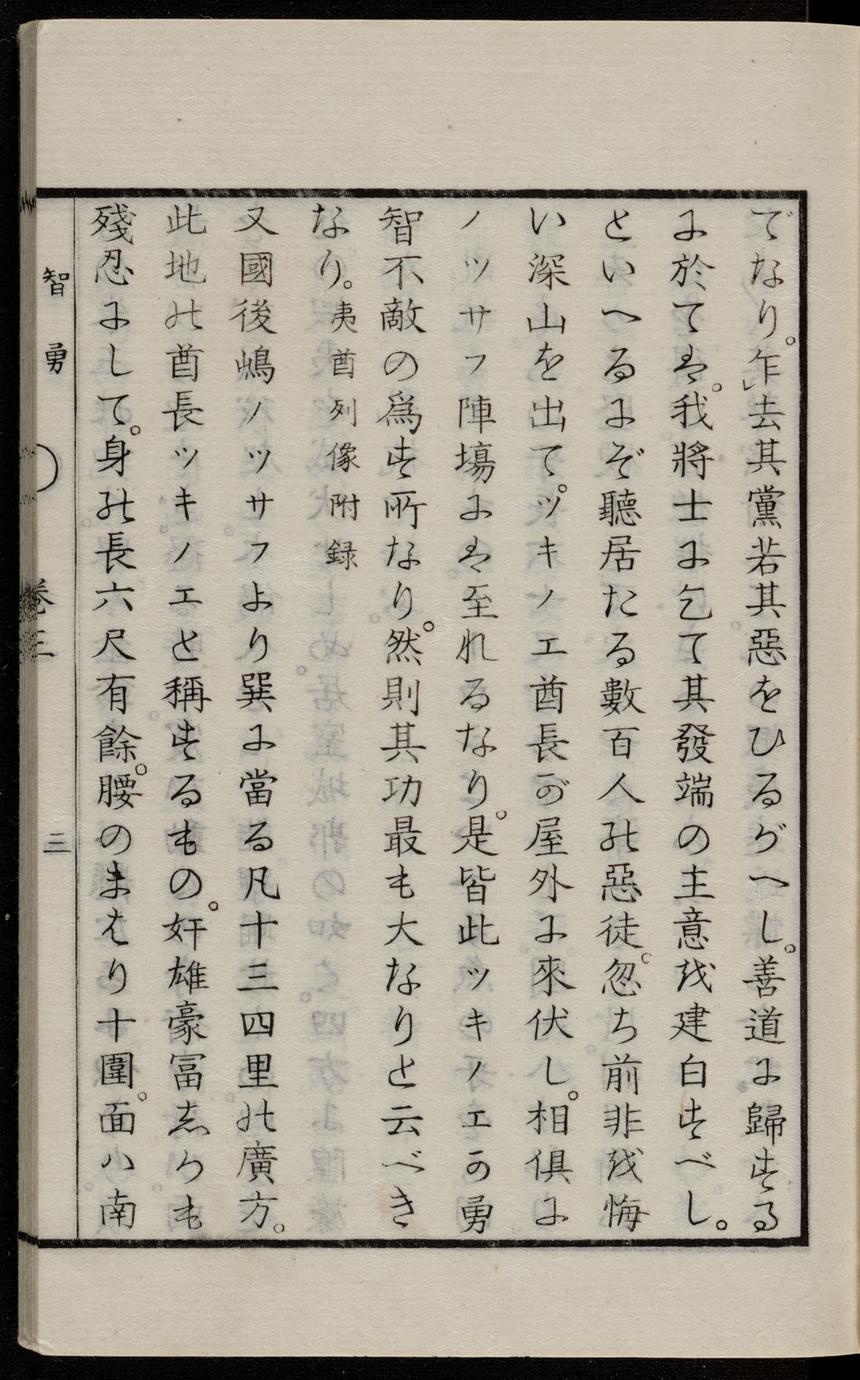 でなり。乍去其黨若其惡をひるがへし。善道に歸する
に於ては。我將士に乞て其發端の主意を建白すべし。
といへるにぞ聽居たる數百人の惡徒。忽ち前非を悔
い深山を出て。ツキノエ酋長が屋外に來伏し。相俱に
ノツサフ陣塲には至れるなり。是皆此ツキノエの勇
智不敵の爲す所なり。然則其功最も大なりと云べき
なり。夷酋列像附録
又國後嶋ノツサフより巽に當る凡十三四里の廣方。
此地の酋長ツキノエと稱するもの。奸雄豪冨しかも
殘忍にして。身の長六尺有餘。腰のまはり十圍。面ハ南
智勇 巻三 三